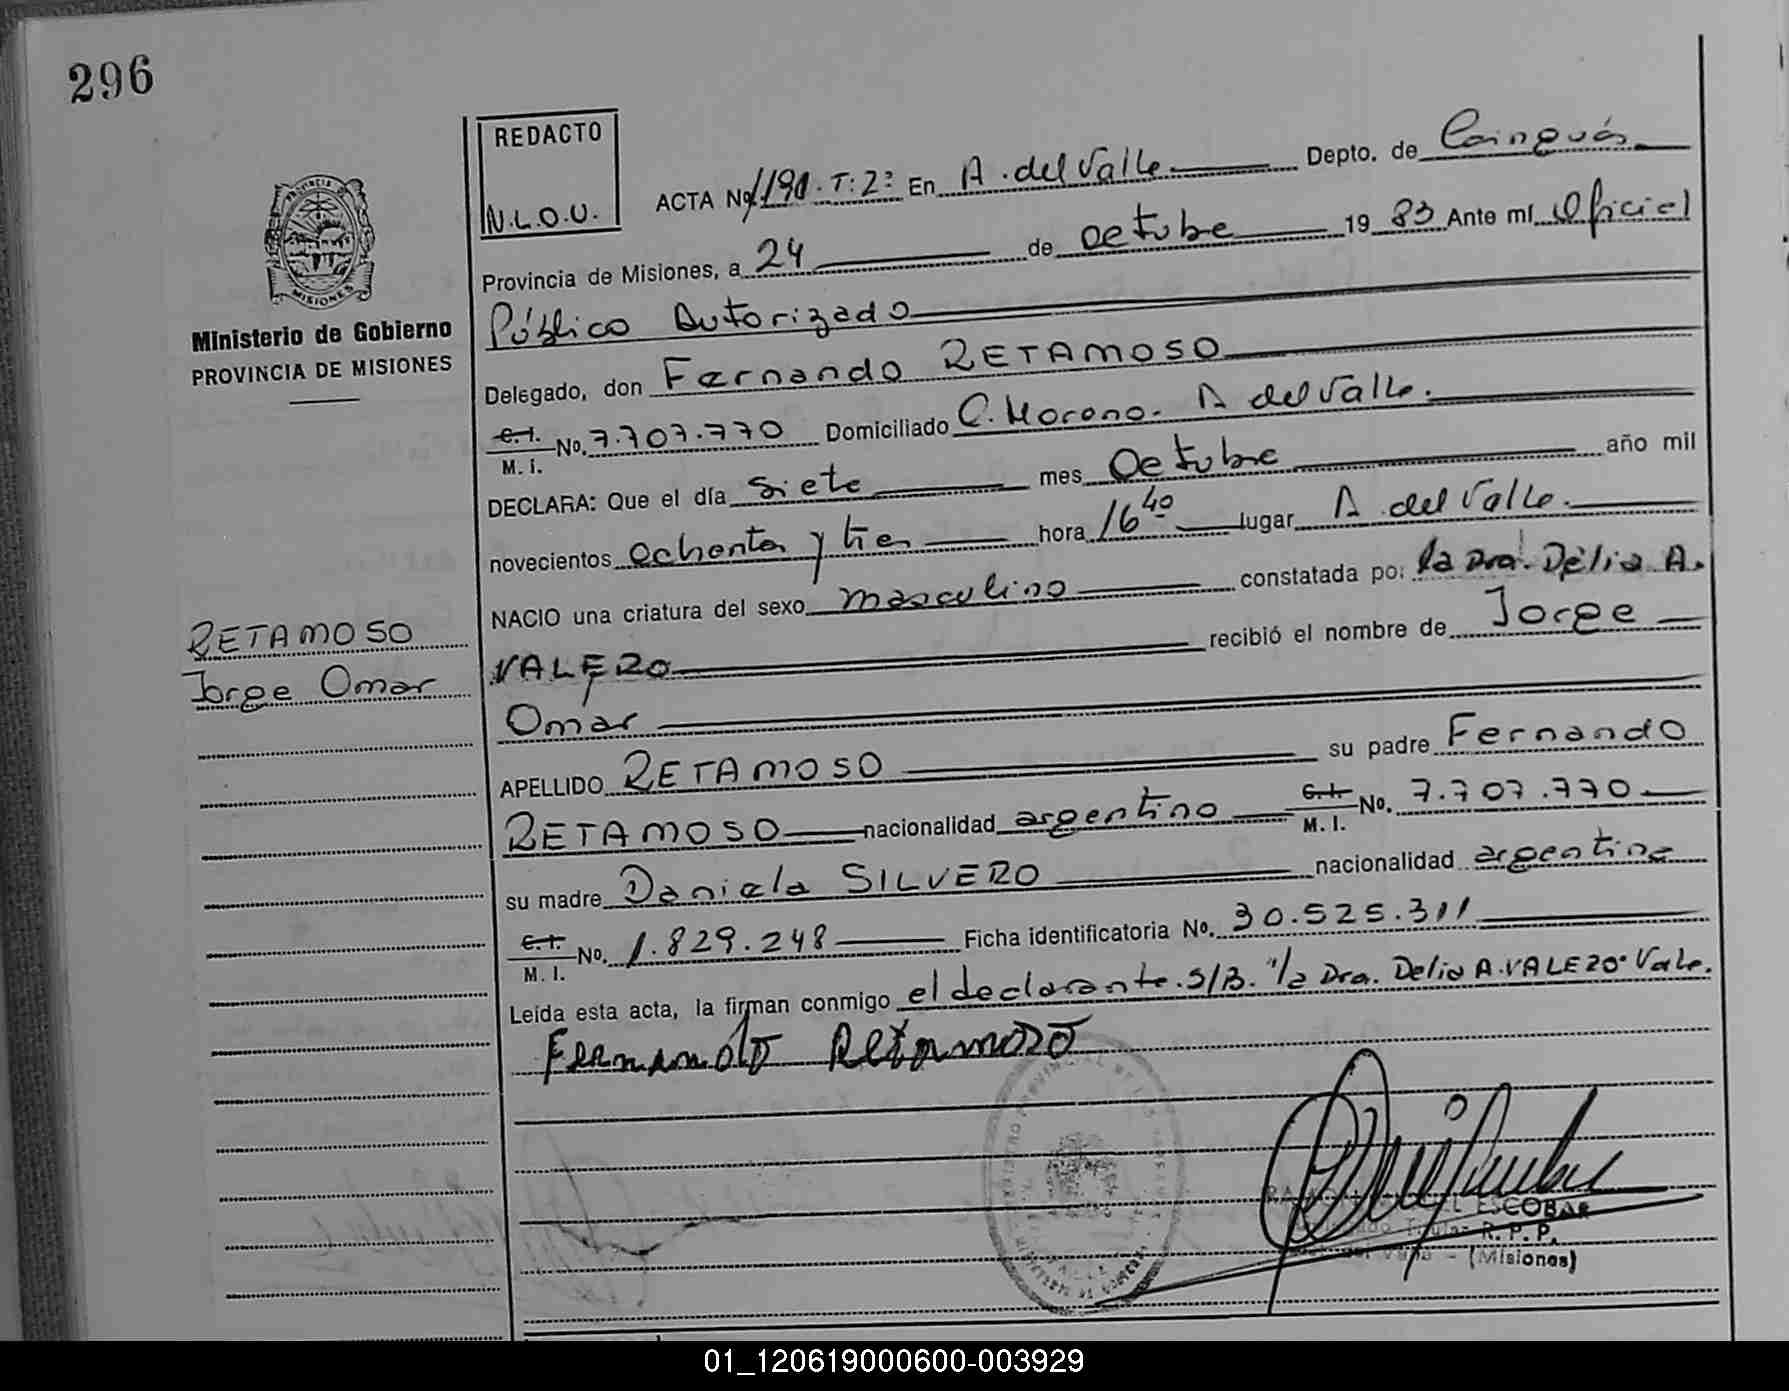 296
REDACTO
N.L.O.U.
PROVINCIA DE
MISIONES
Ministerio de Gobierno
PROVINCIA DE MISIONES
ACTA Nº 1190. T: 2º En A. del Valle Depto. de Cainguás
Provincia de Misiones, a 24 de octubre 19 83 Ante mí Oficial
Público Autorizado
Delegado, don Fernando RETAMOSO
C.I. M. I. No. 7.707.770 Domiciliado C. Moreno. A del Valle.
DECLARA: Que el día siete mes Octubre año mil
novecientos ochenta y tres hora 16 40 lugar A del Valle.
NACIO una criatura del sexo masculino constatada por la Dra. Delia A.
VALERO recibió el nombre de Jorge
Omar
RETAMOSO
Jorge Omar
APELLIDO RETAMOSO su padre Fernando
RETAMOSO nacionalidad argentino C.I. M. I. No. 7.707.770
su madre Daniela SILVERO nacionalidad argentina
C.I. M. I. No. 1.829.248 Ficha identificatoria No. 30.525.311
Leída esta acta, la firman conmigo el declarante. S/B. "la Dra. Delia A. VALERO" Vale.
Fernando Retamoso
ESCOBAR
Titular R. P. P.
(Misiones)
01_120619000600-003929